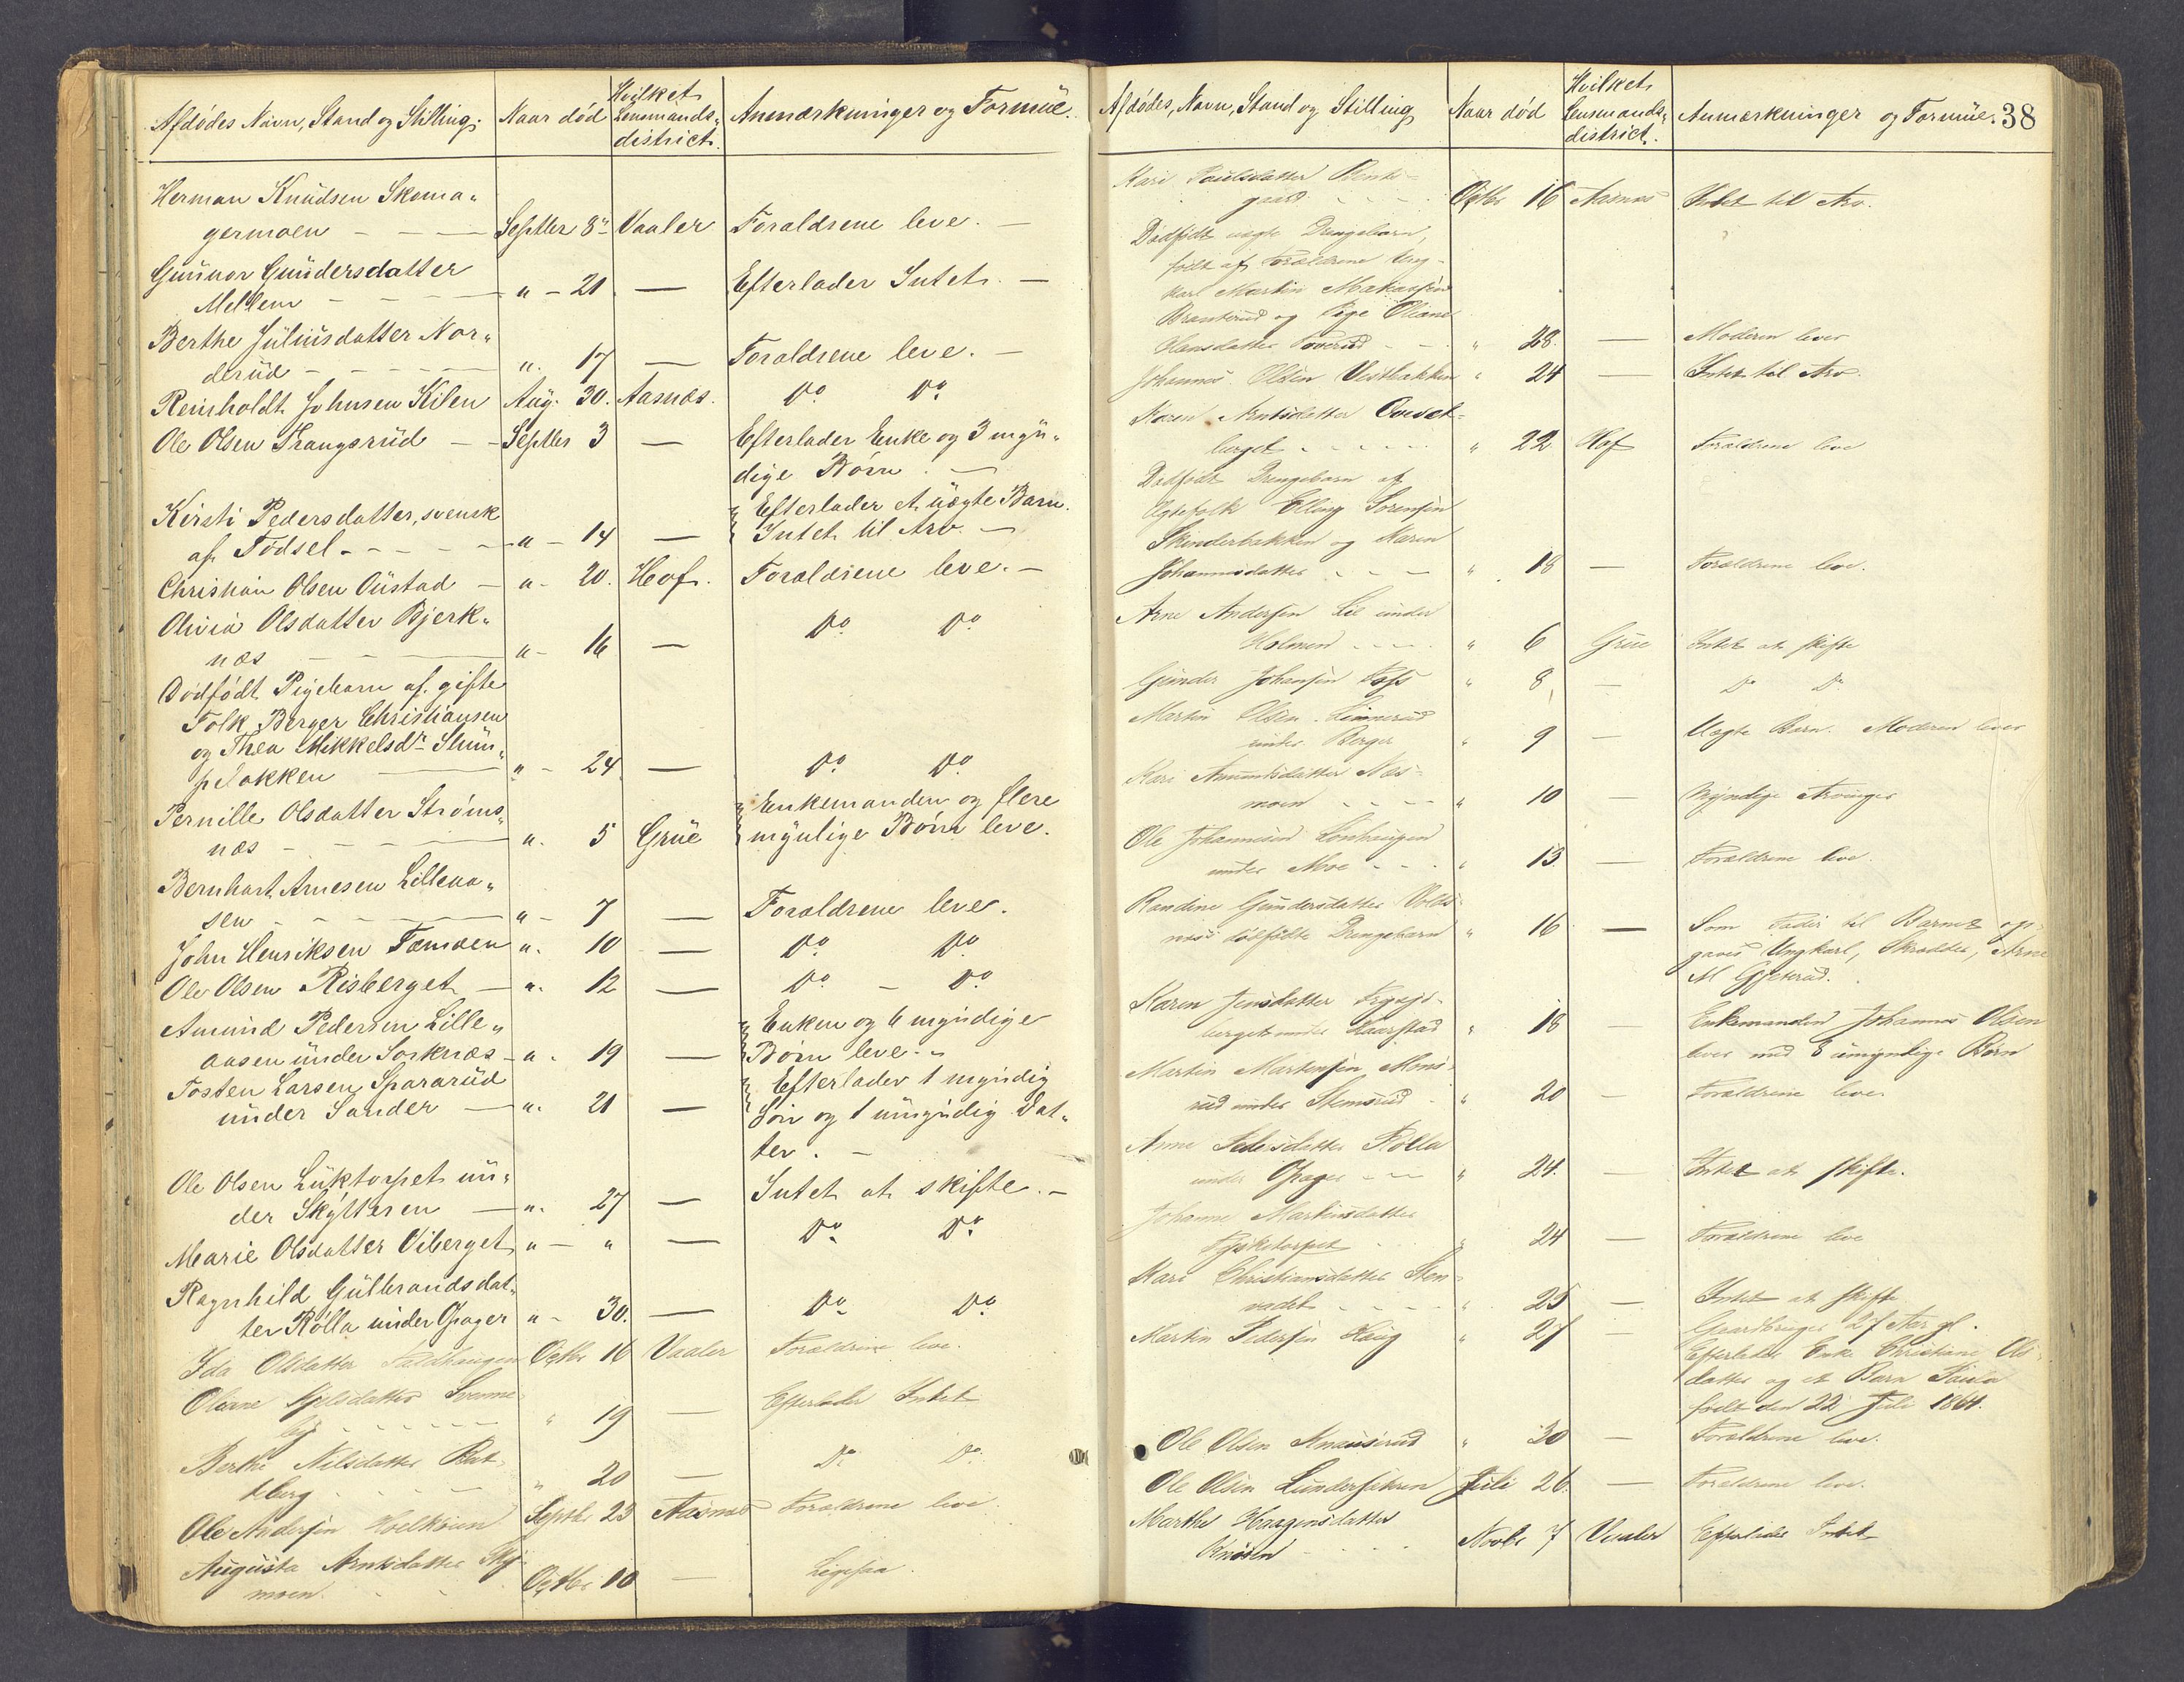 Afdødes Navn, Stand og Stilling.
Naar død
Hvilket Lensmands-district.
Anmærkninger og Formüe.
Herman Knüdsen Skoma-
germoen - - - Septber 8de Vaaler Forældrene leve. -
Günnor Gündersdatter
Mellem - - - - " - 21 — Efterlader Intet. -
Berthe Jüliüsdatter Nor-
derüd - - - - - ". 17 — Forældrene leve. -
Reinholdt Johnsen Kilen Aüg. 30. Aasnæs. Do Do
Ole Olsen Trangsrüd - - Septber 3 — Efterlader Enke og 3 myn-
dige Børn. -
Kirsti Pedersdatter, svensk Efterlader et uægte Barn.
af Fødsel - - - - - " - 14 — Intet til Arv. -
Christian Olsen Oüstad - " - 20. Hof. Forældrene leve. -
Olivia Olsdatter Bjerk-
næs - - - " - 16 — Do Do
Dødfødt Pigebarn af gifte
Folk Berger Christiansen
og Thea Mikkelsdr
pelakken — " - 24 — Do Do
Pernille Olsdatter Strøms- Enkemanden og flere
næs - - - - ". 5 Grüe myndige Børn leve.
Bernhart Arnesen Lilleaa-
sen - - - - - " - 7 — Forældrene leve.
John Henriksen Tæmoen ". 10 — Do Do
Ole Olsen Risberget - ". 12 — Do - Do
Amünd Pedersen Lille- Enken og 6 myndige
aasen ünder Sorknæs - ". 19 — Børn leve. -
Tosten Larsen Spararüd Efterlader 1 myndig
ünder Sander — ". 21 — Søn og 1 ümyndig Dat-
ter. -
Ole Olsen Lüktorpet ün-
der Skÿtteren — ". 27 — Intet at skifte. -
Marie Olsdatter Viberget " - " — Do Do
Ragnhild Gülbrandsdat-
ter Rölla ünder Opager " - 30. — Do Do
Ida Olsdatter Octbr 16 Vaaler Forældrene leve.
Oliane
" 19 — Efterlader Intet
Berthe Nilsdatter
berg - - - - " 20 — Do Do
Ole Andersen Septbr 23 Aasnæs Forældrene leve.
Augusta Arntsdatter
moen. - - Octbr 10 — Ligesaa.
Afdødes, Navn, Stand og Stilling
Naar død
Hvilket Lensmands-district.
Anmærkninger og Formüe.
38
Kari Paulsdatter
gaard - - - - Octbr 16 Aasnæs Intet til Arv.
Dødfødt uægte Drengebarn,
født af Forældrene Ung-
karl Martin
Branterud og Pige Oliane
Hansdatter - - " 28. — Moderen lever
Johannes Olsen Vestbakken " 24 — Intet til Arv.
Karen Arntsdatter
berget - - - - - " 22 Hof Forældrene leve
Dødfødt Drengebarn af
Ægtefolk Elling Sorensen
Skinderbakken og Karen
Johannesdatter - - - " 18 — Forældrene leve.
Arne Andersen Lie under
Holmen - - - - " 6 Grüe Intet at skifte
Günder Johansen " 8 — Do Do
Martin Olsen Linnerud
under Berger " 9 — Uægte Barn. Moderen lever
Kari Amundsdatter Næs-
moen - - - - " 10 — Myndige Arvinger
Ole Johannesen
under Moe - - - " 13 — Forældrene leve.
Randine Gundersdatter Volds-
næs dødfødte Drengebarn " 16 — Som Fader til Barnet op-
gaves Ungkarl, Skrædder, Arne
M. Gjeterud.
Karen Jensdatter
berget under Kaarstad " 18 — Enkemanden Johannes Olsen
lever med 3 umyndige Børn
Martin Martinsen
rud under Stemsrud " 20 — Forældrene leve
Anne Pedersdatter Rølla
under Opager - - - " 24. — Intet at skifte.
Johanne Martinsdatter
" 24 — Forældrene leve
Kari Christiansdatter Sten-
vadet - - - - " 25 — Intet at skifte
Martin Pedersen Haug " 27 — Gaardbruger 27 Aar gl.
Efterlader Enke Christiane Ols-
datter og et Barn Paula
født den 22 Juli 1864.
Ole Olsen Knausrud " 30 — Forældrene leve.
Ole Olsen Lundersæteren Juli 26. — Forældrene leve.
Marthe Haagensdatter
Knøsen - - - - Novbr 7 Vaaler Efterlader Intet